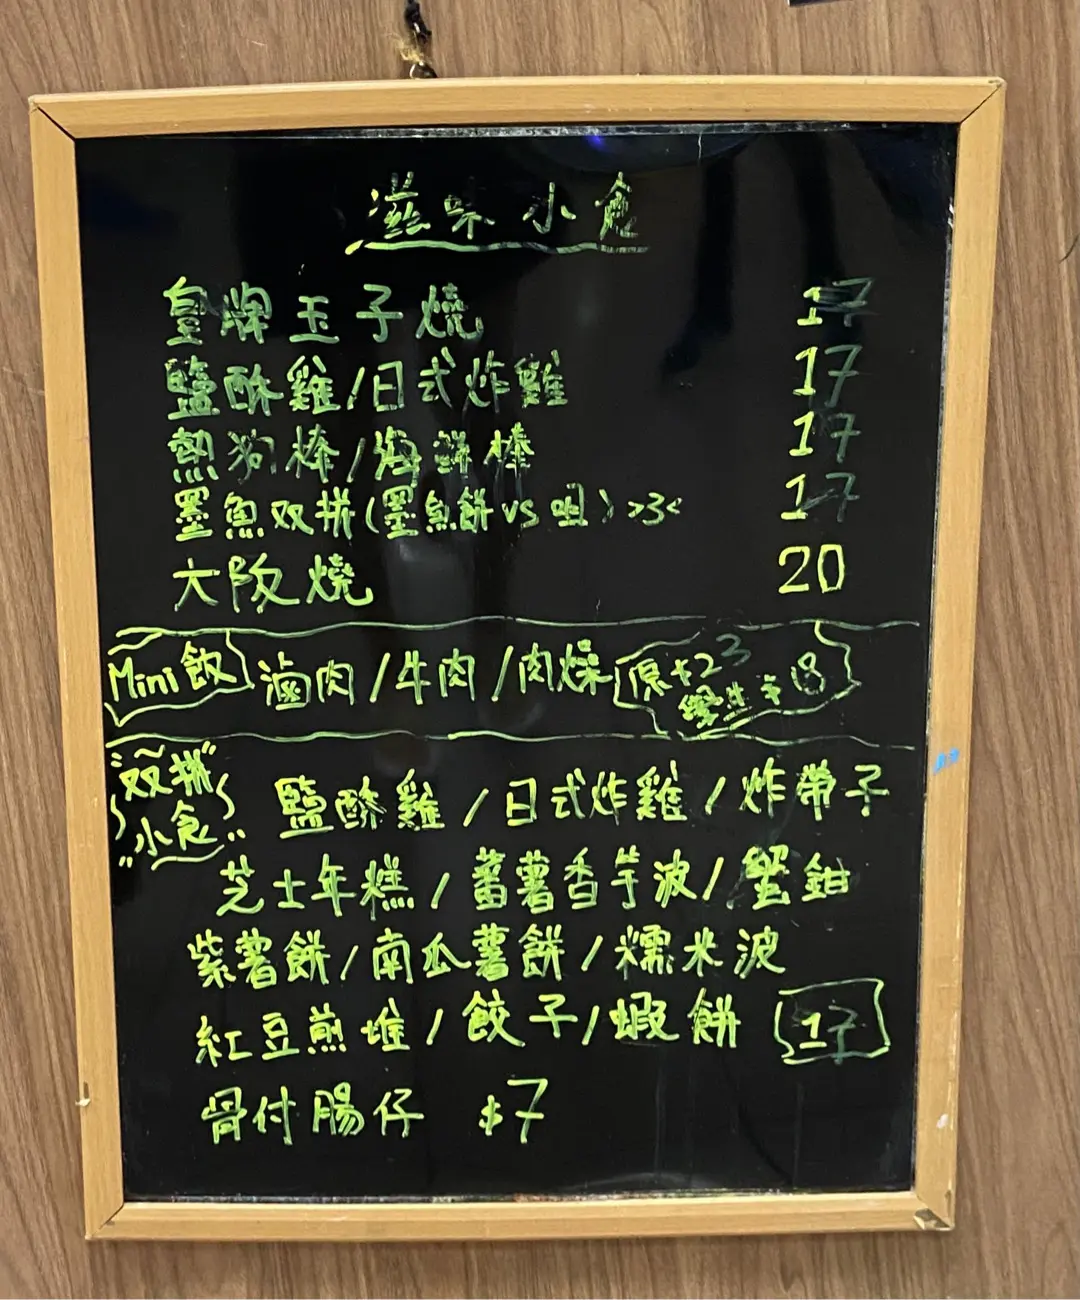 滋味小食
皇牌玉子燒 17
鹽酥雞/日式炸雞 17
熱狗棒/海鮮棒 17
墨魚双拼(墨魚餅vs咀) >3< 17
大阪燒 20
Mini飯 滷肉/牛肉/肉燥 原+23
學生 18
双拼
小食
鹽酥雞/日式炸雞/炸帶子
芝士年糕/蕃薯香芋波/蟹鉗
紫薯餅/南瓜薯餅/糯米波
紅豆煎堆/餃子/蝦餅 17
骨付腸仔 $7